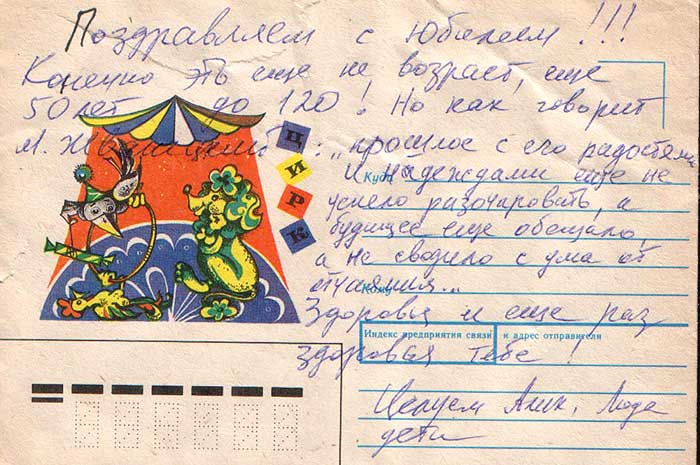 Поздравляем с юбилеем !!!
Конечно это еще не возраст, еще
50 лет до 120! Но как говорит
М. Жванецкий: „прошлое с его радостями
и надеждами еще не
успело разочаровать, а
будущее еще обещало,
а не сводило с ума от
отчаяния..
Здоровья и еще раз
здоровья тебе!
Целуем Алик, Люда
дети
ЦИРК
Куда
Кому
Индекс предприятия связи и адрес отправителя